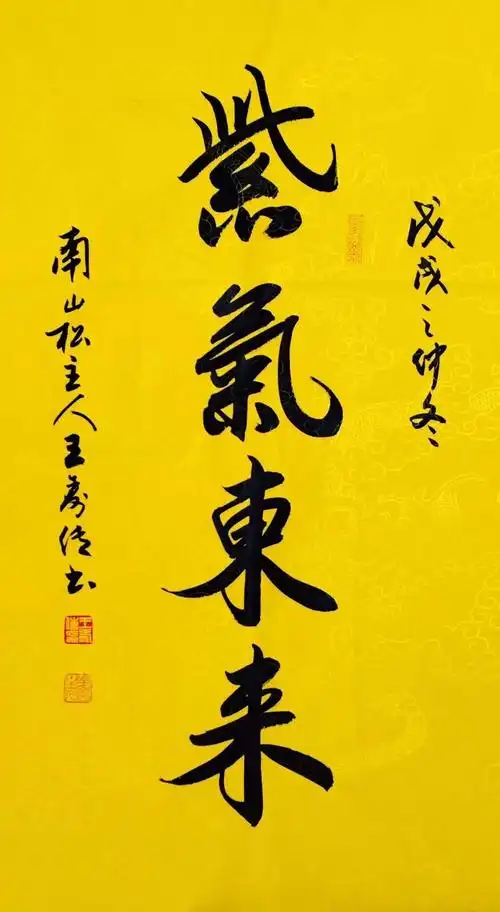 戊戌之仲冬
紫氣東来
南山松主人王壽传书